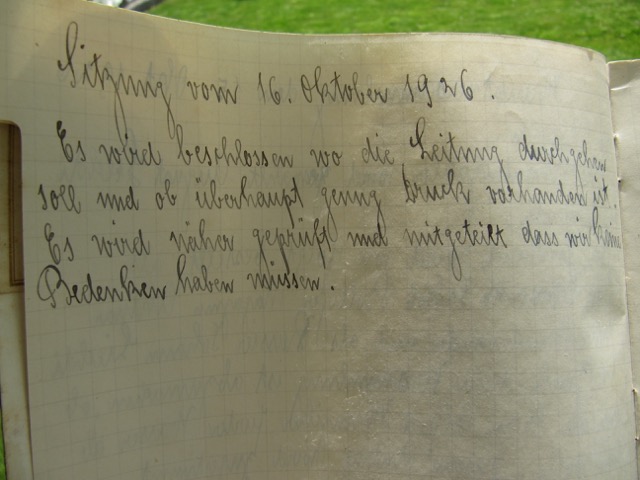 Sitzung vom 16. Oktober 1926.
Es wird beschlossen wo die Leitung durchgehen
soll und ob überhaupt genug Druck vorhanden ist.
Es wird näher geprüft und mitgeteilt dass wir keine
Bedenken haben müssen.